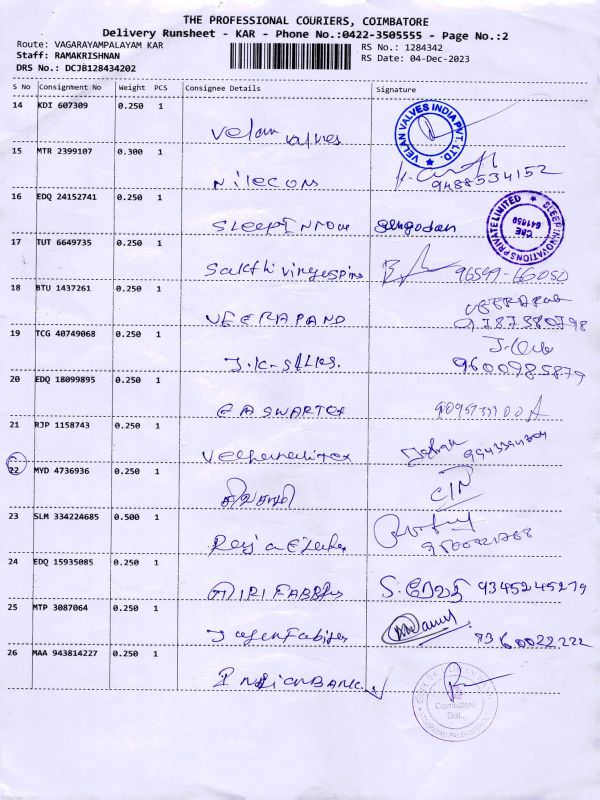 THE PROFESSIONAL COURIERS, COIMBATORE
Delivery Runsheet - KAR - Phone No.:0422-3505555 - Page No.:2
Route: VAGARAYAMPALAYAM KAR
RS No.: 1284342
Staff: RAMAKRISHNAN
RS Date: 04-Dec-2023
DRS No.: DCJB128434202
S No Consignment No Weight PCS Consignee Details Signature
14 KDI 607309 0.250 1
Velan valves
VELAN VALVES INDIA PVT. LTD.
15 MTR 2399107 0.300 1
Nilecons
9488534152
16 EDQ 24152741 0.250 1
Sengodan
SLEEP INNOVATIONS PRIVATE LIMITED
CBE
641659
17 TUT 6649735 0.250 1
96599-66050
18 BTU 1437261 0.250 1
VEERAPAND
9787380798
19 TCG 40749068 0.250 1
J.K-Silks.
9600985879
20 EDQ 18099895 0.250 1
EASWARTEX
21 RJP 1158743 0.250 1
22 MYD 4736936 0.250 1
23 SLM 334224685 0.500 1
24 EDQ 15935085 0.250 1
GIRI FABRICS
9345245279
25 MTP 3087064 0.250 1
9360022222
26 MAA 943814227 0.250 1
Indian BANK
Coimbatore
Dist.